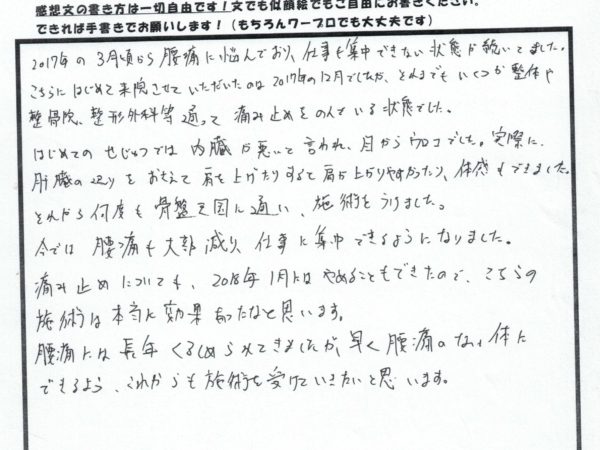 感想文の書き方は一切自由です！文でも似顔絵でもご自由にお書きください。
できれば手書きでお願いします！（もちろんワープロでも大丈夫です）
2017年の3月頃から腰痛に悩んでおり、仕事も集中できない状態が続いてました。
こちらにはじめて来院させていただいたのは2017年の12月でしたが、それまでもいくつか整体や
整骨院、整形外科等通って痛み止めをのんでいる状態でした。
はじめてのせじゅつでは内臓が悪いて言われ、目からウロコでした。実際に、
肝臓の辺りをおさえて肩を上げたりすると肩が上がりやすかったり、体感もできました。
それから何度も骨盤王国に通い、施術をうけました。
今では腰痛も大部減り、仕事に集中できるようになりました。
痛み止めについても、2018年1月にはやめることもできたので、こちらの
施術は本当に効果あったなと思います。
腰痛には長年くるしめられてきましたが、早く腰痛のない体に
できるよう、これからも施術を受けていきたいと思います。